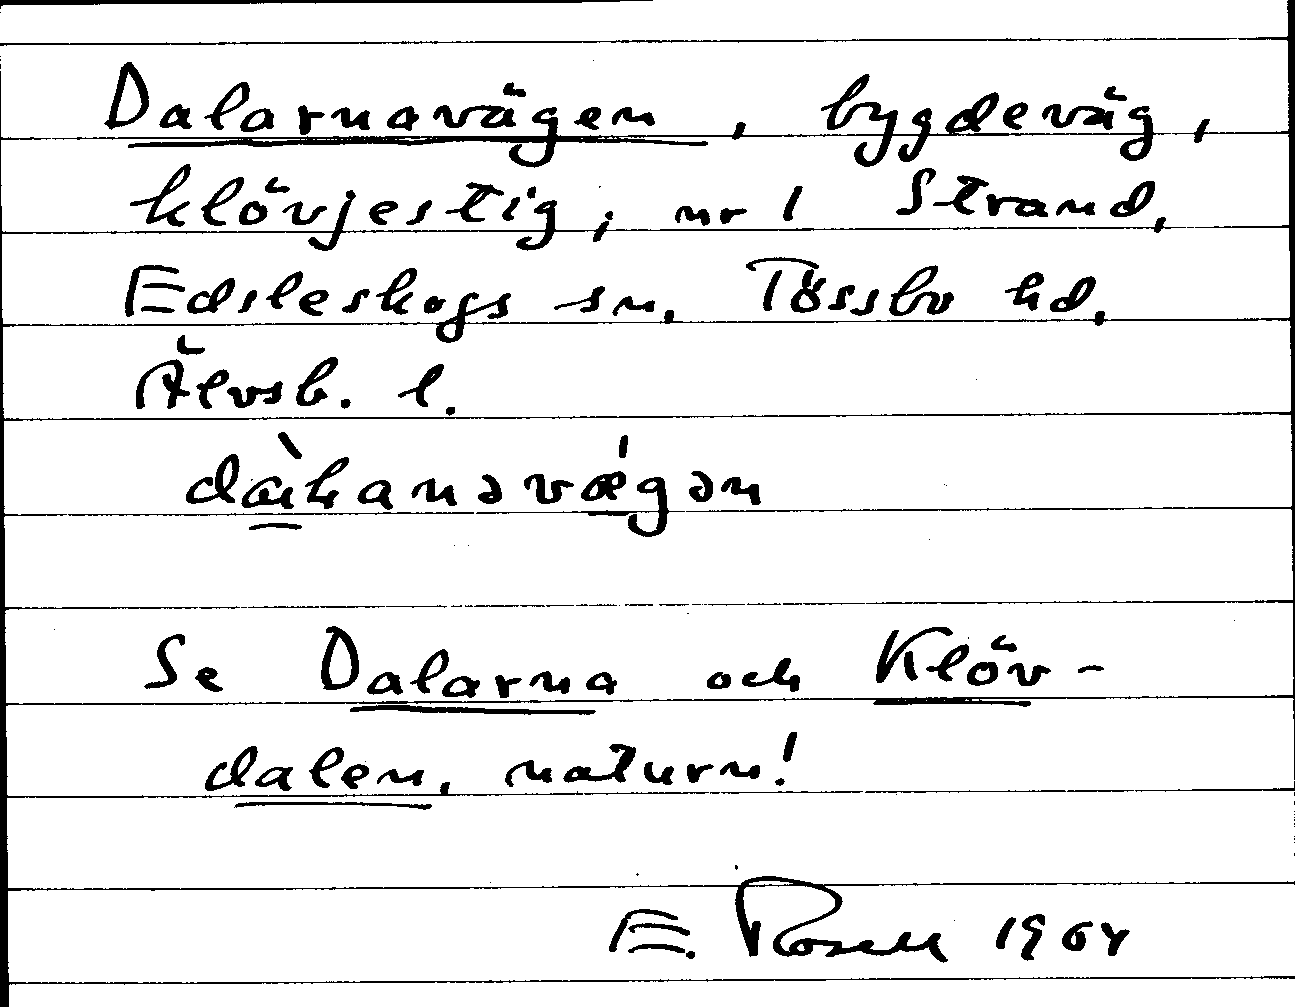 Dalarnavägen, bygdeväg,
klövjestig, nr 1 Strand,
Edsleskogs sn, Tössbo hd,
Älvsb. l.
Se Dalarna och Klöv-
dalen, naturn!
E. Rosell 1964